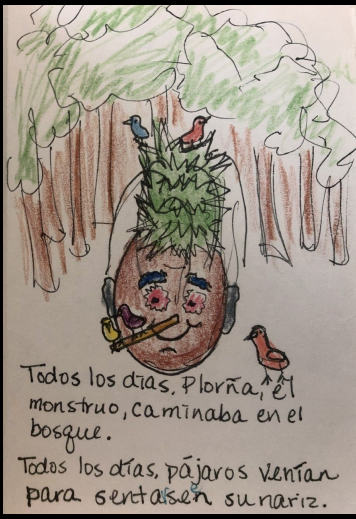 Todos los días, Plorña, el
monstruo, caminaba en el
bosque.
Todos los días, pájaros venían
para sentarsen su nariz.